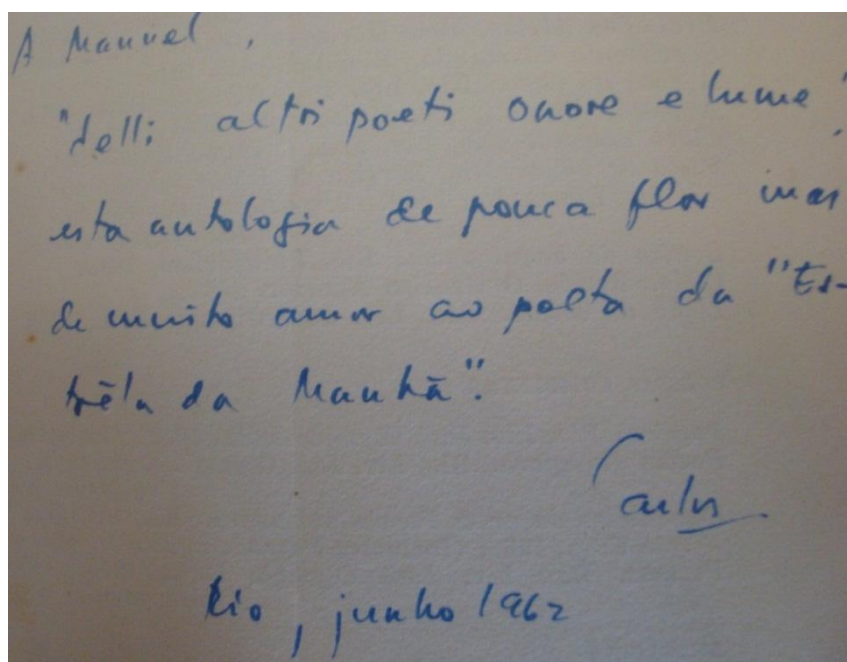 A Manuel,
"delli altri poeti onore e lume",
esta antologia de pouca flor mas
de muito amor ao poeta da "Es-
trêla da Manhã".
Carlos
Rio, junho 1962